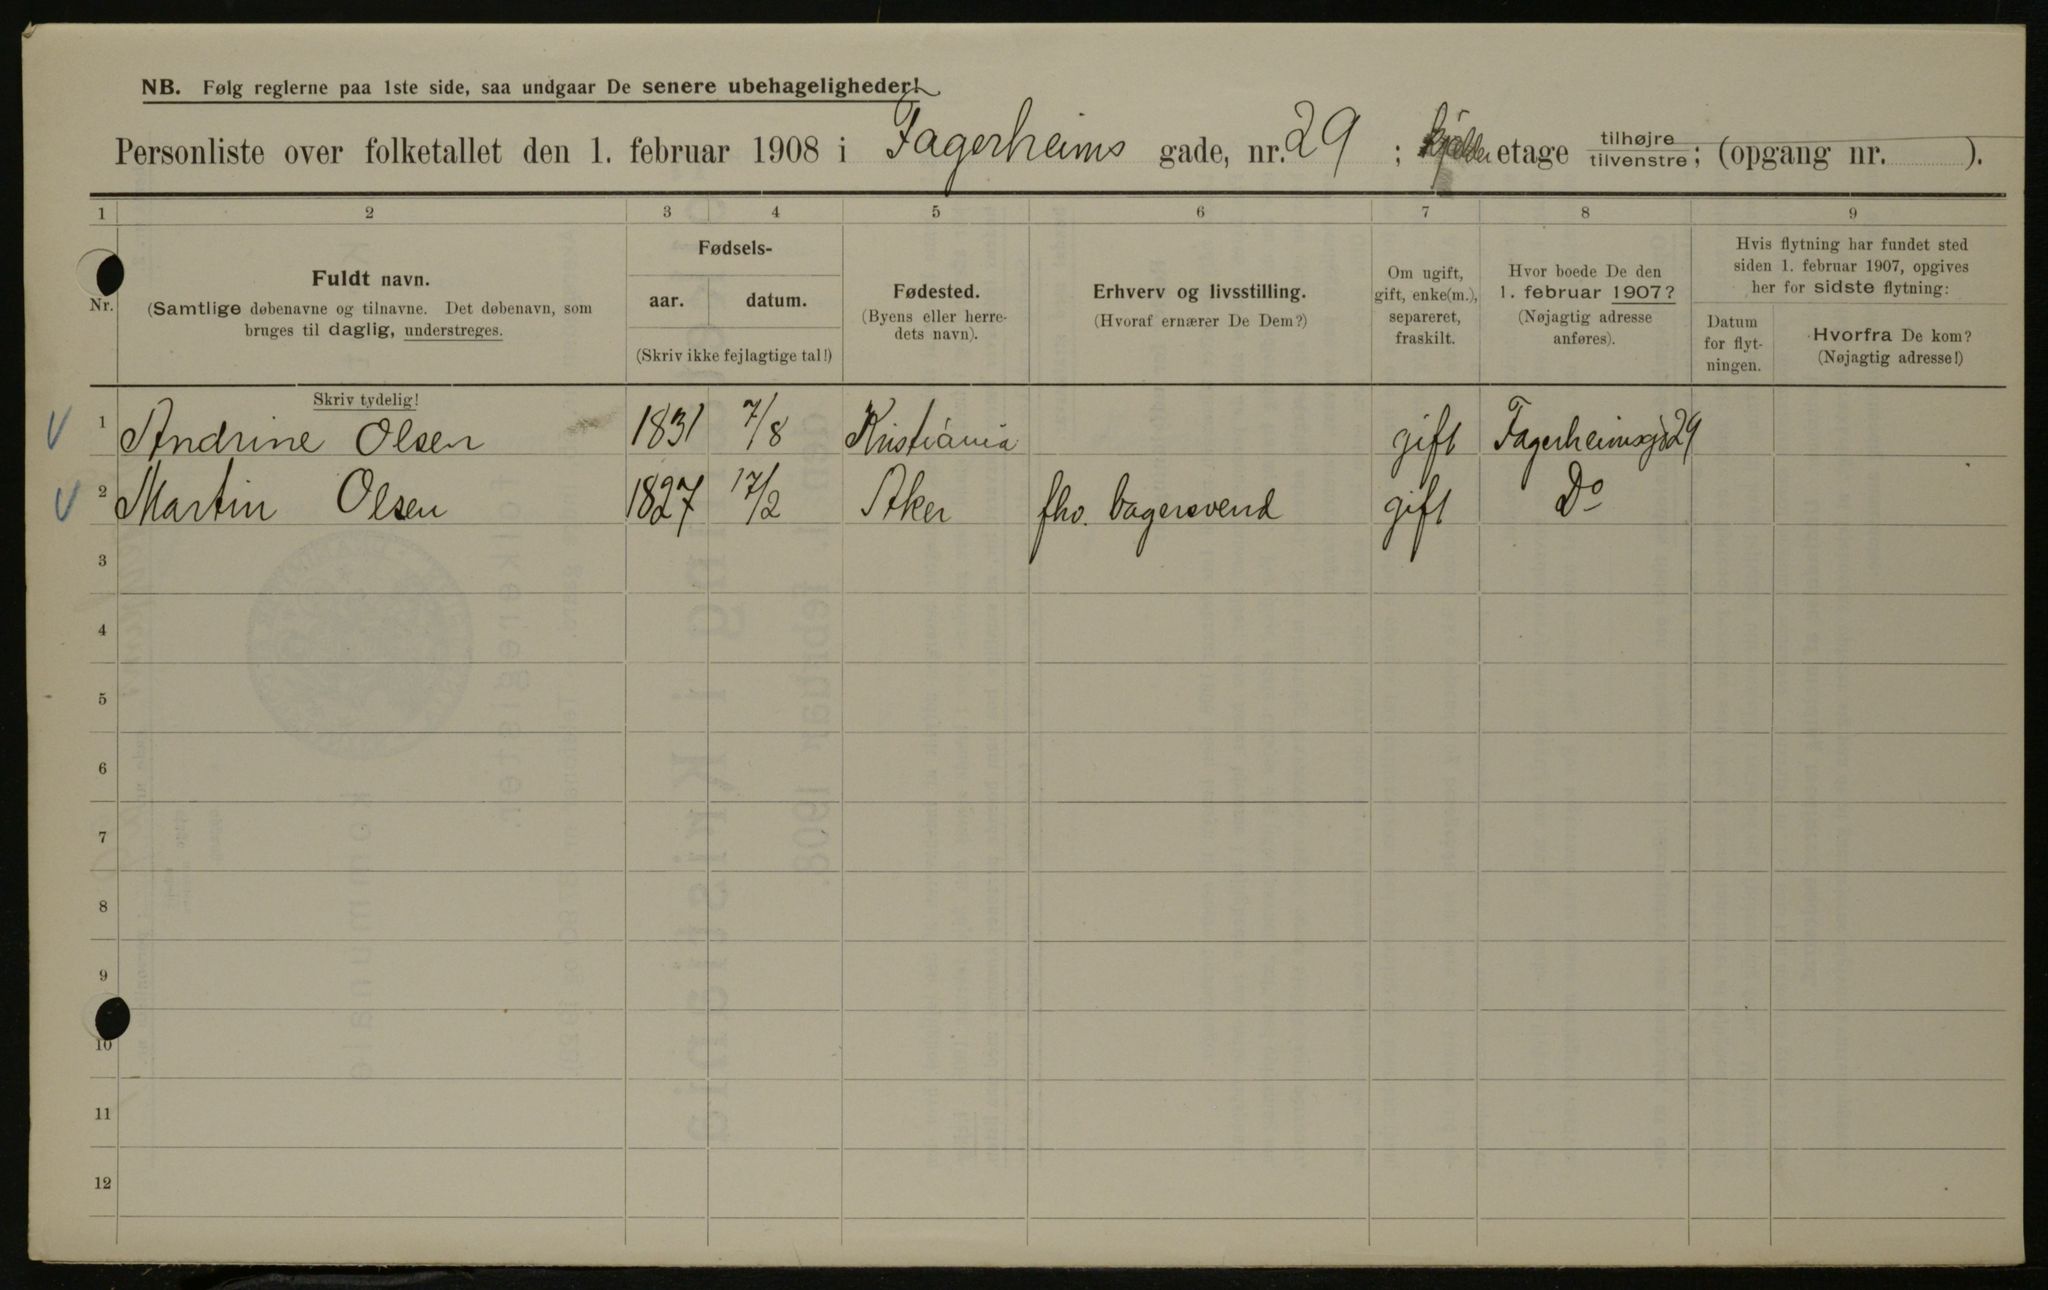 NB. Følg reglerne paa 1ste side, saa undgaar De senere ubehageligheder!
Personliste over folketallet den 1. februar 1908 i Fagerheims gade, nr. 29 ; kjelder etage tilhøjre tilvenstre; (opgang nr. ).
1 2 3 4 5 6 7 8 9
Nr.
Fuldt navn.
(Samtlige døbenavne og tilnavne. Det døbenavn, som
bruges til daglig, understreges.
Skriv tydelig!
Fødsels-
aar. datum.
(Skriv ikke fejlagtige tal!)
Fødested.
(Byens eller herre-
dets navn).
Erhverv og livsstilling.
(Hvoraf ernærer De Dem?)
Om ugift,
gift, enke(m.),
separeret,
fraskilt.
Hvor boede De den
1. februar 1907?
(Nøjagtig adresse
anføres).
Hvis flytning har fundet sted
siden 1. februar 1907, opgives
her for sidste flytning:
Datum
for flyt-
ningen.
Hvorfra De kom?
(Nøjagtig adresse!)
1 Andrine Olsen 1831 7/8 Kristiania gift Fagerheimsgd 29
2 Martin Olsen 1827 17/2 Aker fhv. bagersvend gift Do
3
4
5
6
7
8
9
10
11
12